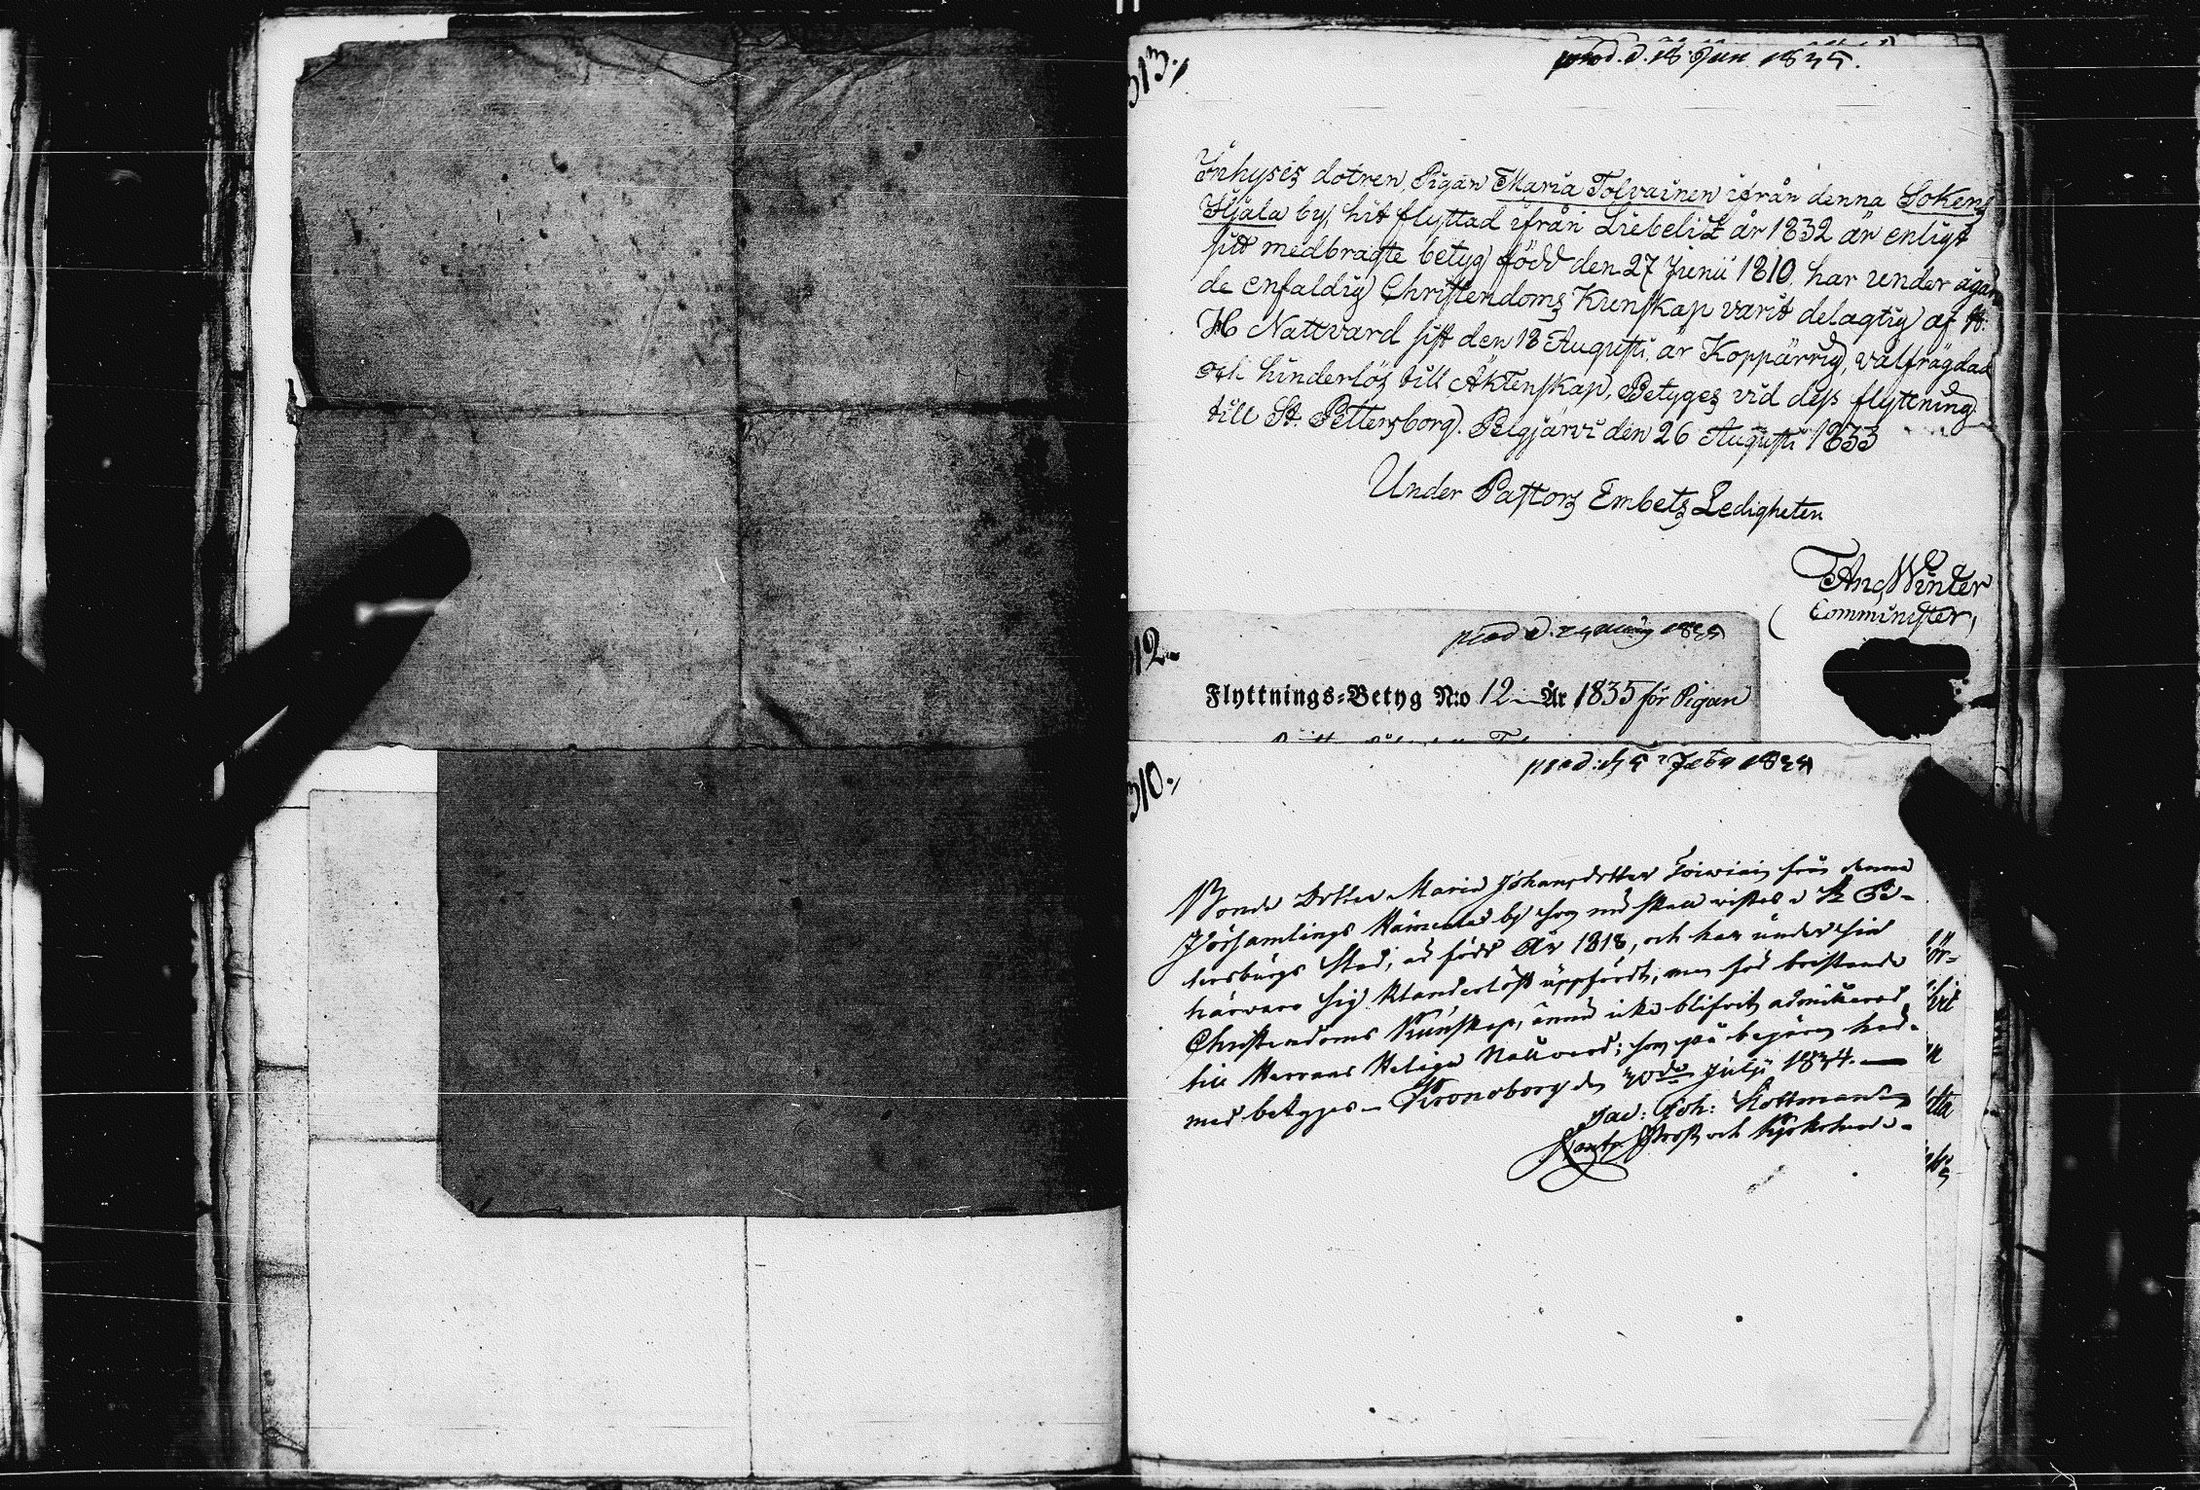 313.
prod. d. 18 Jun 1835.
Inhyses dotren, Pigan Maria Tolvainen ifrån denna Sokens
by, hit flyttad ifrån Liebelitz år 1832 är enligt
sitt medbragte betyg född den 27 Junii 1810. har under ägan
de enfaldig Christendoms Kunskap varit delagtig af H:
H Nattvard sist den 18 Augusti, är Koppärrig, välfrägdad
och hinderlös till Äktenskap, Betyges vid dess flyttning
till St. Pettersborg. Pelgjärvi den 26 Augusti 1833
Under Pastors Embets Ledigheten
And Winter
Comminister,
12.
prod d. 1835
Flyttnings-Betyg N:o 12 År 1835 för Pigan
310.
prod: d. 5 Feb 1835
Bonde Dotter Maria Johansdotter från denna
Församlings by som nu skall vistas i St Pe-
tersburgs Stad, är född År 1818, och har under sin
härvaro sig klanderlöst uppfördt, men för bristande
Christendoms Kunskap, ännu icke blifvit admitterad
till Herrans Heliga Nattvard; som på begäran här-
med betygas. Kronoborg den 30de Julii 1834.
Jac: Joh: Kottman
Prost och Kyrkoherde.